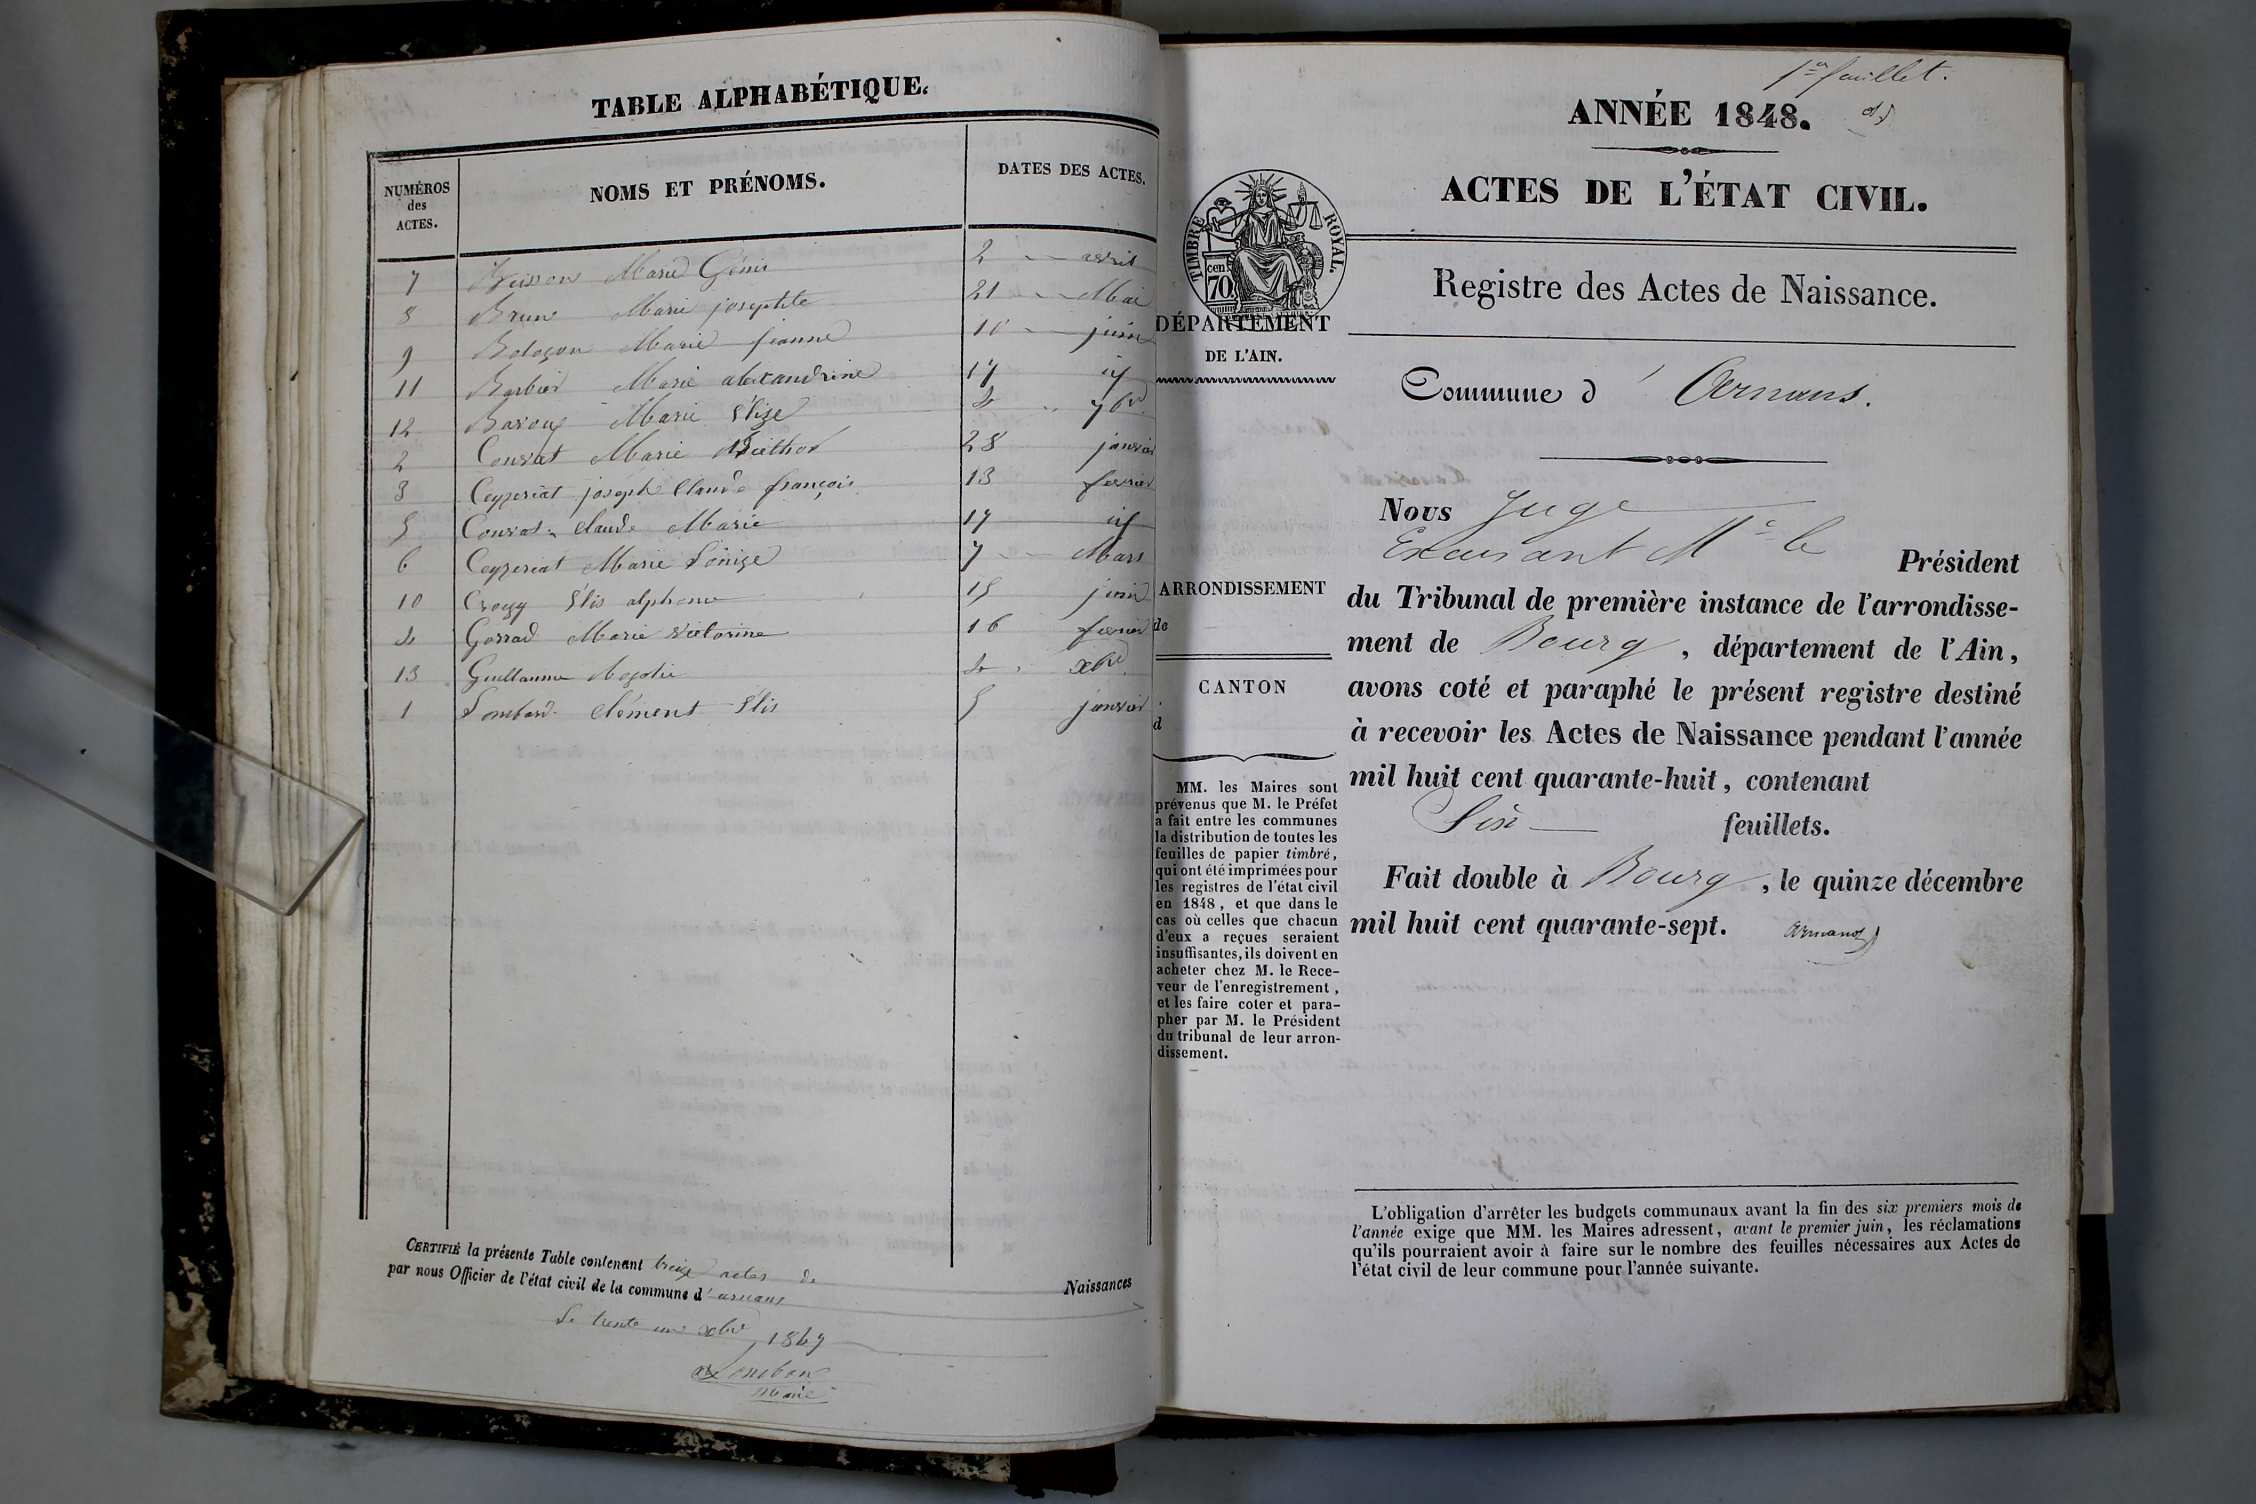 TABLE ALPHABÉTIQUE.
NUMÉROS des ACTES.
NOMS ET PRÉNOMS.
DATES DES ACTES.
7 Buisson Marie Génie 2 avril
8 Brun Marie josephte 21 Mai
9 Bologon Marie jeanne 10 juin
11 Barbier Marie alexandrine 17
12 Marie Elize 4 7bre
2 Convat Marie 28 janvier
3 Ceyzeriat joseph Claude françois 13 fevrier
5 Convat Claude Marie 17
6 Ceyzeriat Marie Loüise 7 Mars
10 Elis alphonse 15 juin
4 Marie victorine 16 fevrier
13 Guillaume 4 xbre
1 Lombard Clément Elis 5 janvier
CERTIFIÉ la présente Table contenant treize actes de Naissances
par nous Officier de l'état civil de la commune d'arnans
Le trente un xbre 1847
Lombard
Maire
1er feuillet.
ANNÉE 1848.
ACTES DE L'ÉTAT CIVIL.
TIMBRE ROYAL.
cen. 70
Registre des Actes de Naissance.
DÉPARTEMENT
DE L'AIN.
Commune d' Arnans.
Nous Juge
Excusant Mr le Président
du Tribunal de première instance de l'arrondisse-
ment de Bourg, département de l'Ain,
avons coté et paraphé le présent registre destiné
à recevoir les Actes de Naissance pendant l'année
mil huit cent quarante-huit, contenant
Six feuillets.
Fait double à Bourg, le quinze décembre
mil huit cent quarante-sept.
Armand
ARRONDISSEMENT
de
CANTON
d
MM. les Maires sont
prévenus que M. le Préfet
a fait entre les communes
la distribution de toutes les
feuilles de papier timbré,
qui ont été imprimées pour
les registres de l'état civil
en 1848, et que dans le
cas où celles que chacun
d'eux a reçues seraient
insuffisantes, ils doivent en
acheter chez M. le Rece-
veur de l'enregistrement,
et les faire coter et para-
pher par M. le Président
du tribunal de leur arron-
dissement.
L'obligation d'arrêter les budgets communaux avant la fin des six premiers mois de
l'année exige que MM. les Maires adressent, avant le premier juin, les réclamations
qu'ils pourraient avoir à faire sur le nombre des feuilles nécessaires aux Actes de
l'état civil de leur commune pour l'année suivante.